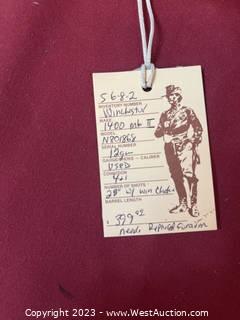 5-6-8-2
INVENTORY NUMBER
Winchester
MAKE
1400 mk II
MODEL
N801868
SERIAL NUMBER
12ga
GAUGE - CALIBER
USED
CONDITION
4+1
NUMBER OF SHOTS
28" w/ Win Choke
BARREL LENGTH
$ 399.92
needs
Copyright 2023 - www.WestAuction.com